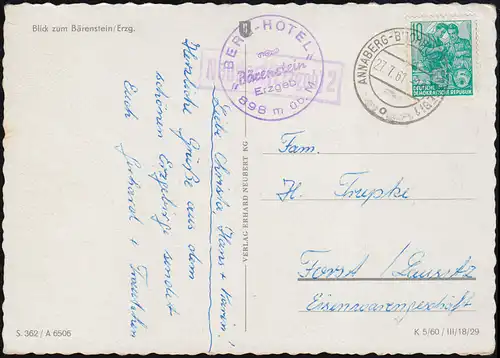 Blick zum Bärenstein/Erzg.
"BERG-HOTEL"
Bärenstein
Erzgeb.
898 m üb. M.
2
ANNABERG-B
27.7.61
10
5
DEUTSCHE
DEMOKRATISCHE REPUBLIK
Liebe Christa, Hans + Karin!
Herzliche Grüße aus dem
schönen Erzgebirge sendet
Euch Gerhard +
VERLAG ERHARD NEUBERT KG
Fam.
H. Trupke
Forst / Lausitz
Eisenwarengeschäft
S. 362 / A 6506
K 5/60 / III/18/29